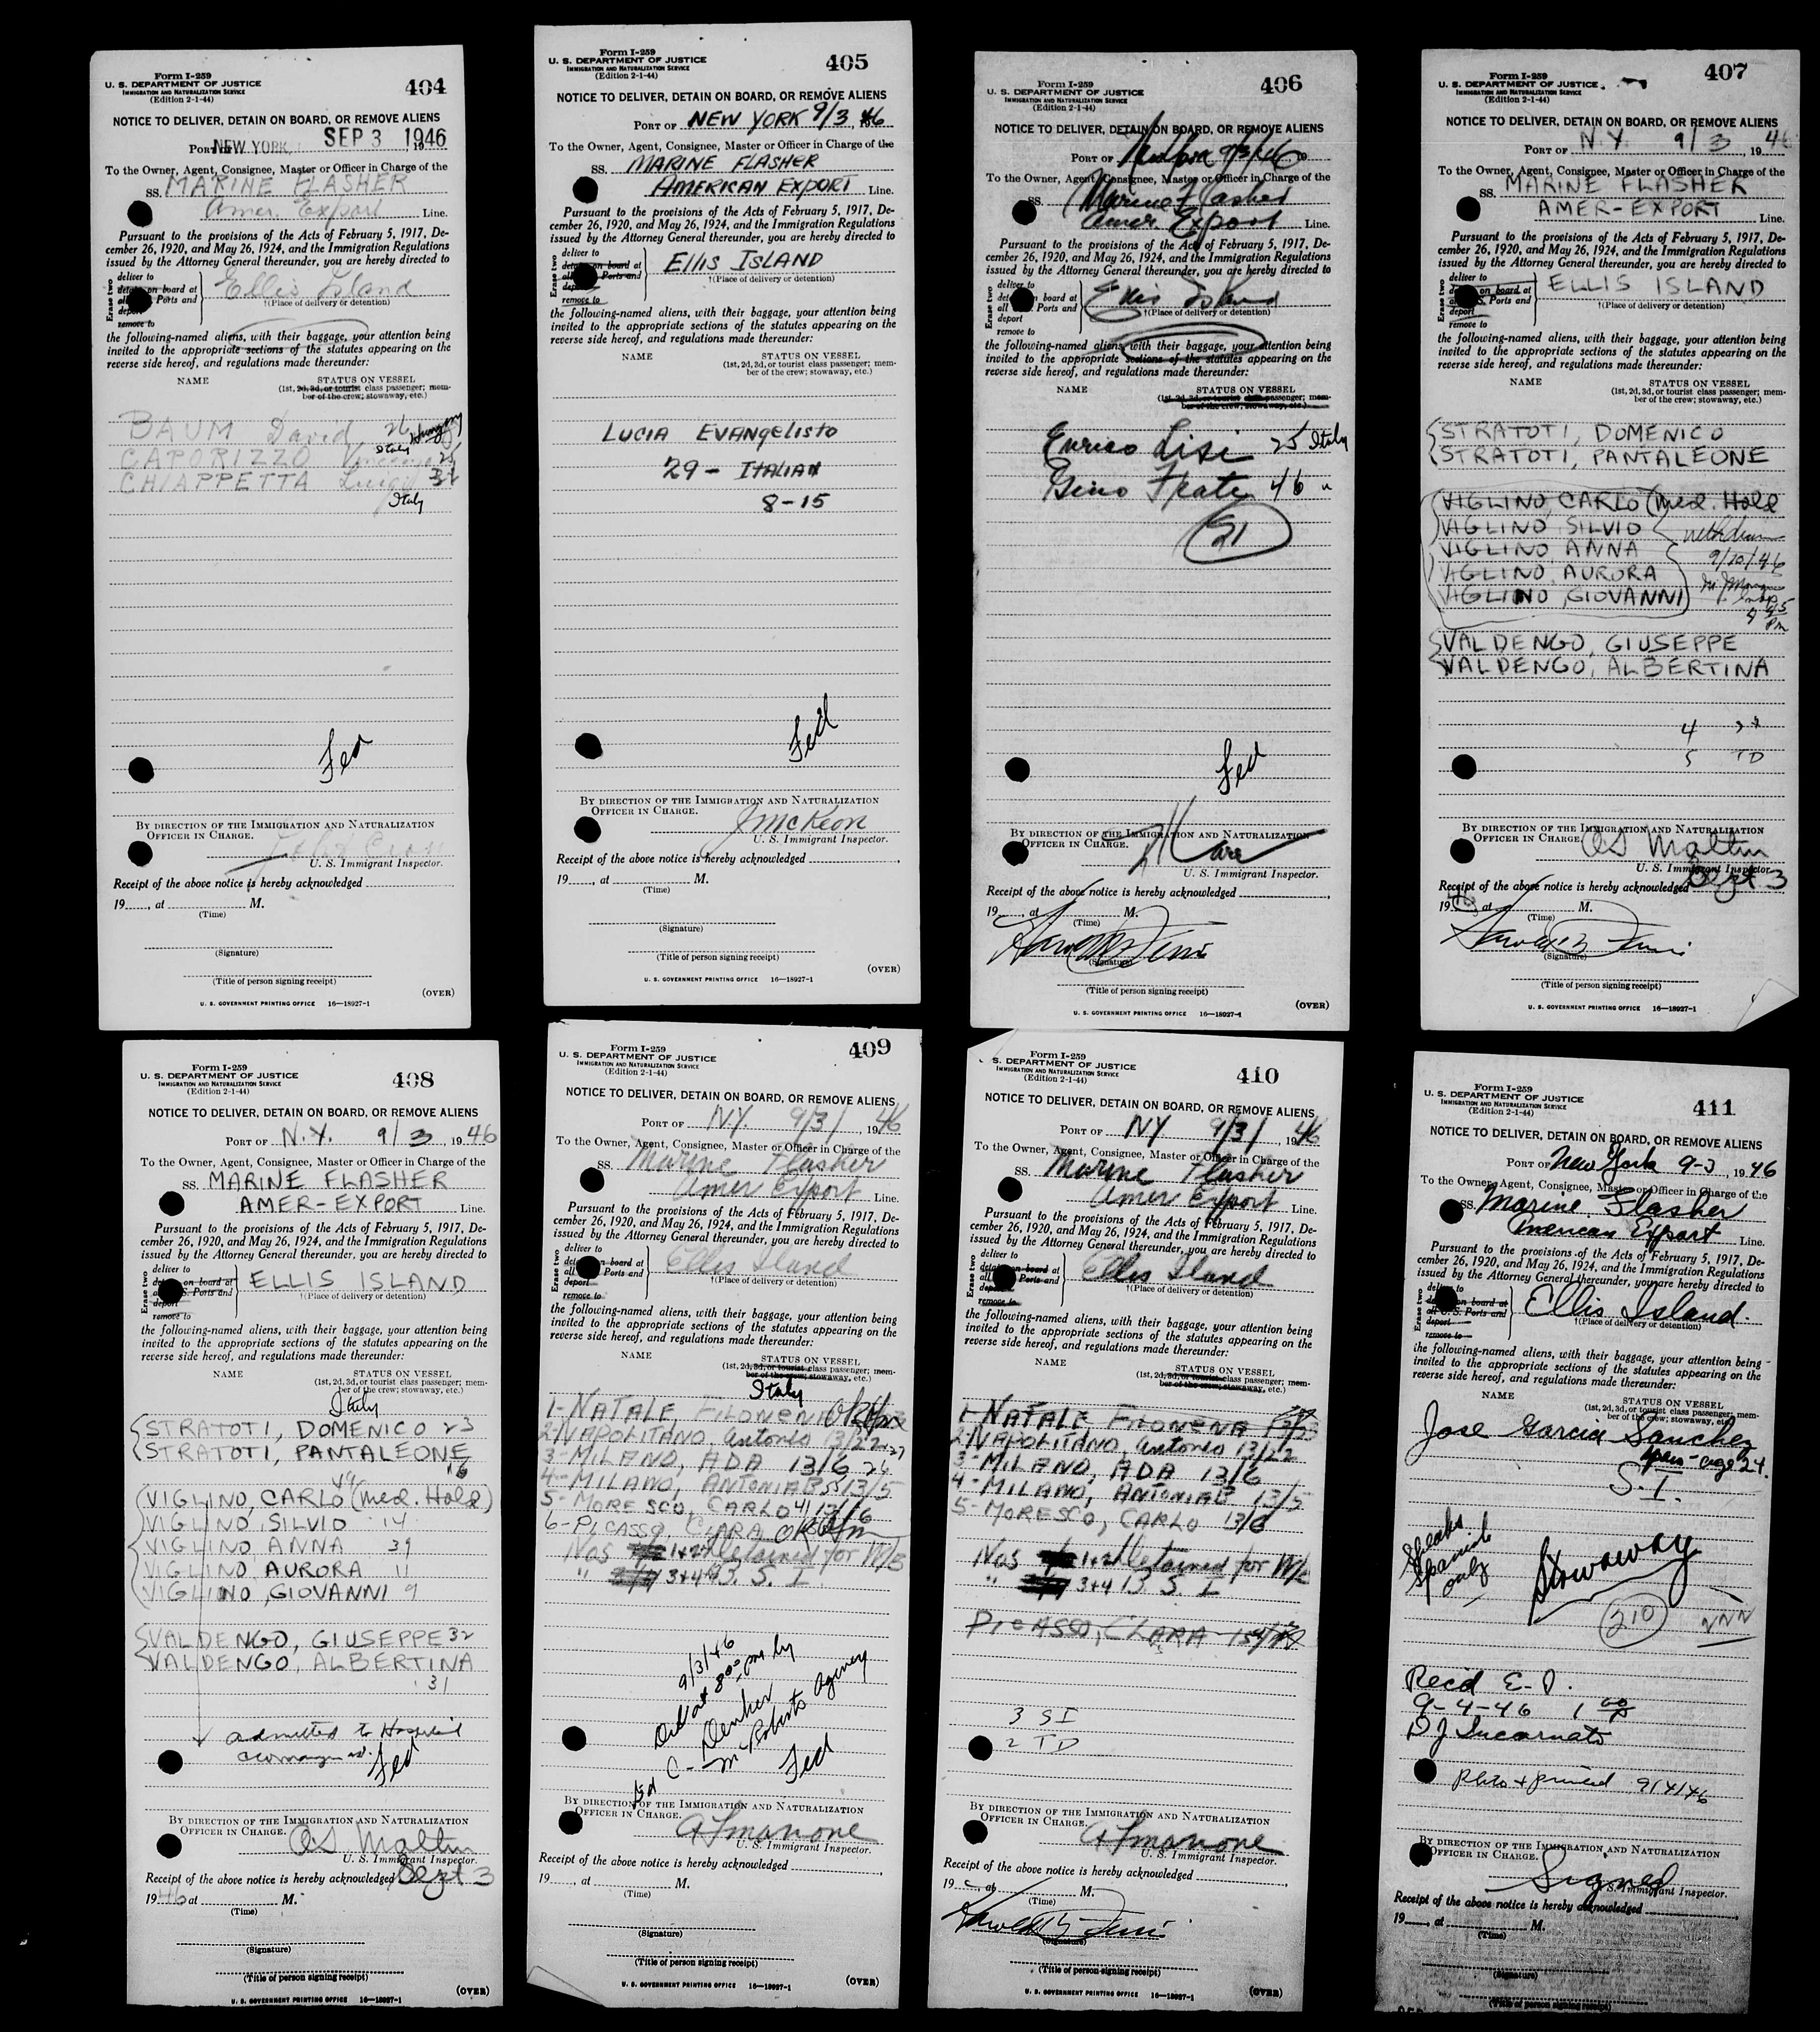 Form I-259
U. S. DEPARTMENT OF JUSTICE
IMMIGRATION AND NATURALIZATION SERVICE
(Edition 2-1-44)
404
NOTICE TO DELIVER, DETAIN ON BOARD, OR REMOVE ALIENS
PORT OF NEW YORK, SEP 3 1946
To the Owner, Agent, Consignee, Master or Officer in Charge of the
SS. MARINE FLASHER
Amer. Export Line.
Pursuant to the provisions of the Acts of February 5, 1917, De-
cember 26, 1920, and May 26, 1924, and the Immigration Regulations
issued by the Attorney General thereunder, you are hereby directed to
Erase two
deliver to
detain on board at
all U. S. Ports and
deport
remove to
Ellis Island
†(Place of delivery or detention)
the following-named aliens, with their baggage, your attention being
invited to the appropriate sections of the statutes appearing on the
reverse side hereof, and regulations made thereunder:
NAME STATUS ON VESSEL
(1st, 2d, 3d, or tourist class passenger; mem-
ber of the crew; stowaway, etc.)
BAUM David 26 Hungary
CAPORIZZO Italy 25
CHIAPPETTA Luigi 32
Italy
Fed
BY DIRECTION OF THE IMMIGRATION AND NATURALIZATION
OFFICER IN CHARGE.
U. S. Immigrant Inspector.
Receipt of the above notice is hereby acknowledged
19 , at M.
(Time)
(Signature)
(Title of person signing receipt)
(OVER)
U. S. GOVERNMENT PRINTING OFFICE 16—18927-1
Form I-259
U. S. DEPARTMENT OF JUSTICE
IMMIGRATION AND NATURALIZATION SERVICE
(Edition 2-1-44)
405
NOTICE TO DELIVER, DETAIN ON BOARD, OR REMOVE ALIENS
PORT OF NEW YORK 9/3, 46
To the Owner, Agent, Consignee, Master or Officer in Charge of the
SS. MARINE FLASHER
AMERICAN EXPORT Line.
Pursuant to the provisions of the Acts of February 5, 1917, De-
cember 26, 1920, and May 26, 1924, and the Immigration Regulations
issued by the Attorney General thereunder, you are hereby directed to
Erase two
deliver to
detain on board at
all U. S. Ports and
deport
remove to
ELLIS ISLAND
†(Place of delivery or detention)
the following-named aliens, with their baggage, your attention being
invited to the appropriate sections of the statutes appearing on the
reverse side hereof, and regulations made thereunder:
NAME STATUS ON VESSEL
(1st, 2d, 3d, or tourist class passenger; mem-
ber of the crew; stowaway, etc.)
LUCIA EVANgelisto
29 - ITALIAN
8-15
Fed
BY DIRECTION OF THE IMMIGRATION AND NATURALIZATION
OFFICER IN CHARGE.
J McKeon
U. S. Immigrant Inspector.
Receipt of the above notice is hereby acknowledged
19 , at M.
(Time)
(Signature)
(Title of person signing receipt)
(OVER)
U. S. GOVERNMENT PRINTING OFFICE 16—18927-1
Form I-259
U. S. DEPARTMENT OF JUSTICE
IMMIGRATION AND NATURALIZATION SERVICE
(Edition 2-1-44)
406
NOTICE TO DELIVER, DETAIN ON BOARD, OR REMOVE ALIENS
PORT OF 9/3/46
To the Owner, Agent, Consignee, Master or Officer in Charge of the
SS. Marine Flasher
Amer. Export Line.
Pursuant to the provisions of the Acts of February 5, 1917, De-
cember 26, 1920, and May 26, 1924, and the Immigration Regulations
issued by the Attorney General thereunder, you are hereby directed to
Erase two
deliver to
detain on board at
all U. S. Ports and
deport
remove to
Ellis Island
†(Place of delivery or detention)
the following-named aliens, with their baggage, your attention being
invited to the appropriate sections of the statutes appearing on the
reverse side hereof, and regulations made thereunder:
NAME STATUS ON VESSEL
(1st, 2d, 3d, or tourist class passenger; mem-
ber of the crew; stowaway, etc.)
Enrico Lisi 25 Italy
Gino Frate 46 "
Fed
BY DIRECTION OF THE IMMIGRATION AND NATURALIZATION
OFFICER IN CHARGE.
U. S. Immigrant Inspector.
Receipt of the above notice is hereby acknowledged
19 , at M.
(Time)
(Signature)
(Title of person signing receipt)
(OVER)
U. S. GOVERNMENT PRINTING OFFICE 16—18927-1
Form I-259
U. S. DEPARTMENT OF JUSTICE
IMMIGRATION AND NATURALIZATION SERVICE
(Edition 2-1-44)
407
NOTICE TO DELIVER, DETAIN ON BOARD, OR REMOVE ALIENS
PORT OF N.Y. 9/3, 1946
To the Owner, Agent, Consignee, Master or Officer in Charge of the
SS. MARINE FLASHER
AMER-EXPORT Line.
Pursuant to the provisions of the Acts of February 5, 1917, De-
cember 26, 1920, and May 26, 1924, and the Immigration Regulations
issued by the Attorney General thereunder, you are hereby directed to
Erase two
deliver to
detain on board at
all U. S. Ports and
deport
remove to
ELLIS ISLAND
†(Place of delivery or detention)
the following-named aliens, with their baggage, your attention being
invited to the appropriate sections of the statutes appearing on the
reverse side hereof, and regulations made thereunder:
NAME STATUS ON VESSEL
(1st, 2d, 3d, or tourist class passenger; mem-
ber of the crew; stowaway, etc.)
STRATOTI, DOMENICO
STRATOTI, PANTALEONE
VIGLINO, CARLO (Med. Hold
VIGLINO, SILVIO withdrawn
VIGLINO ANNA 9/10/46
VIGLINO AURORA
VIGLINO, GIOVANNI
Pm
VALDENGO, GIUSEPPE
VALDENGO, ALBERTINA
4
5 TD
BY DIRECTION OF THE IMMIGRATION AND NATURALIZATION
OFFICER IN CHARGE.
U. S. Immigrant Inspector.
Receipt of the above notice is hereby acknowledged Sept 3
1946 at M.
(Time)
(Signature)
(Title of person signing receipt)
U. S. GOVERNMENT PRINTING OFFICE 16—18927-1
Form I-259
U. S. DEPARTMENT OF JUSTICE
IMMIGRATION AND NATURALIZATION SERVICE
(Edition 2-1-44)
408
NOTICE TO DELIVER, DETAIN ON BOARD, OR REMOVE ALIENS
PORT OF N.Y. 9/3 1946
To the Owner, Agent, Consignee, Master or Officer in Charge of the
SS. MARINE FLASHER
AMER-EXPORT Line.
Pursuant to the provisions of the Acts of February 5, 1917, De-
cember 26, 1920, and May 26, 1924, and the Immigration Regulations
issued by the Attorney General thereunder, you are hereby directed to
Erase two
deliver to
detain on board at
all U. S. Ports and
deport
remove to
ELLIS ISLAND
†(Place of delivery or detention)
the following-named aliens, with their baggage, your attention being
invited to the appropriate sections of the statutes appearing on the
reverse side hereof, and regulations made thereunder:
NAME STATUS ON VESSEL
(1st, 2d, 3d, or tourist class passenger; mem-
ber of the crew; stowaway, etc.)
Italy
STRATOTI, DOMENICO 23
STRATOTI, PANTALEONE
16
49
VIGLINO, CARLO (Med. Hold)
VIGLINO, SILVIO 14
VIGLINO, ANNA 39
VIGLINO, AURORA 11
VIGLINO, GIOVANNI 9
VALDENGO, GIUSEPPE 32
VALDENGO, ALBERTINA
31
admitted to Hospital
Fed
BY DIRECTION OF THE IMMIGRATION AND NATURALIZATION
OFFICER IN CHARGE.
U. S. Immigrant Inspector.
Receipt of the above notice is hereby acknowledged Sept 3
1946 at M.
(Time)
(Signature)
(Title of person signing receipt)
(OVER)
U. S. GOVERNMENT PRINTING OFFICE 16—18927-1
Form I-259
U. S. DEPARTMENT OF JUSTICE
IMMIGRATION AND NATURALIZATION SERVICE
(Edition 2-1-44)
409
NOTICE TO DELIVER, DETAIN ON BOARD, OR REMOVE ALIENS
PORT OF N.Y. 9/3/, 1946
To the Owner, Agent, Consignee, Master or Officer in Charge of the
SS. Marine Flasher
Amer Export Line.
Pursuant to the provisions of the Acts of February 5, 1917, De-
cember 26, 1920, and May 26, 1924, and the Immigration Regulations
issued by the Attorney General thereunder, you are hereby directed to
Erase two
deliver to
detain on board at
all U. S. Ports and
deport
remove to
Ellis Island
†(Place of delivery or detention)
the following-named aliens, with their baggage, your attention being
invited to the appropriate sections of the statutes appearing on the
reverse side hereof, and regulations made thereunder:
NAME STATUS ON VESSEL
(1st, 2d, 3d, or tourist class passenger; mem-
ber of the crew; stowaway, etc.)
Italy
1-NATALE, FILOMENA
2-NAPOLITANO, Antonio 13/22 27
3-MILANO, ADA 13/6 26
4-MILANO, ANTONIA B 55 13/5
5-MORESCO, CARLO 41 13/6
6-PICASSO, CLARA OK
Nos 1+2 detained for
" 3+4 B. S. I.
9/3/46
Del at 8 00 pm by
Denker
C- McRoberts Agency
Fed
BY DIRECTION OF THE IMMIGRATION AND NATURALIZATION
OFFICER IN CHARGE.
A F Manone
U. S. Immigrant Inspector.
Receipt of the above notice is hereby acknowledged
19 , at M.
(Time)
(Signature)
(Title of person signing receipt)
(OVER)
U. S. GOVERNMENT PRINTING OFFICE 16—18927-1
Form I-259
S. DEPARTMENT OF JUSTICE
IMMIGRATION AND NATURALIZATION SERVICE
(Edition 2-1-44)
410
NOTICE TO DELIVER, DETAIN ON BOARD, OR REMOVE ALIENS
PORT OF NY 9/3/, 1946
To the Owner, Agent, Consignee, Master or Officer in Charge of the
SS. Marine Flasher
Amer Export Line.
Pursuant to the provisions of the Acts of February 5, 1917, De-
cember 26, 1920, and May 26, 1924, and the Immigration Regulations
issued by the Attorney General thereunder, you are hereby directed to
Erase two
deliver to
detain on board at
all U. S. Ports and
deport
remove to
Ellis Island
†(Place of delivery or detention)
the following-named aliens, with their baggage, your attention being
invited to the appropriate sections of the statutes appearing on the
reverse side hereof, and regulations made thereunder:
NAME STATUS ON VESSEL
(1st, 2d, 3d, or tourist class passenger; mem-
ber of the crew; stowaway, etc.)
1-NATALE FILOMENA
2-NAPOLITANO, Antonio 13/22
3-MILANO, ADA 13/6
4-MILANO, ANTONIA B 13/5
5-MORESCO, CARLO 13/6
Nos 1+2 detained for
" 3+4 B. S. I
PICASSO, CLARA
3 SI
2 TD
BY DIRECTION OF THE IMMIGRATION AND NATURALIZATION
OFFICER IN CHARGE.
A F Manone
U. S. Immigrant Inspector.
Receipt of the above notice is hereby acknowledged
19 , at M.
(Time)
(Signature)
(Title of person signing receipt)
(OVER)
U. S. GOVERNMENT PRINTING OFFICE 16—18927-1
Form I-259
U. S. DEPARTMENT OF JUSTICE
IMMIGRATION AND NATURALIZATION SERVICE
(Edition 2-1-44)
411
NOTICE TO DELIVER, DETAIN ON BOARD, OR REMOVE ALIENS
PORT OF New York 9-3, 1946
To the Owner, Agent, Consignee, Master or Officer in Charge of the
SS. Marine Flasher
American Export Line.
Pursuant to the provisions of the Acts of February 5, 1917, De-
cember 26, 1920, and May 26, 1924, and the Immigration Regulations
issued by the Attorney General thereunder, you are hereby directed to
Erase two
deliver to
detain on board at
all U. S. Ports and
deport
remove to
Ellis Island.
†(Place of delivery or detention)
the following-named aliens, with their baggage, your attention being
invited to the appropriate sections of the statutes appearing on the
reverse side hereof, and regulations made thereunder:
NAME STATUS ON VESSEL
(1st, 2d, 3d, or tourist class passenger; mem-
ber of the crew; stowaway, etc.)
Jose Garcia Sanchez
Spain - age 24.
S.I.
Speaks
Spanish
only
Stowaway
210
Rec'd E-I.
9-4-46 1 00
D J Incarnato
Photo + printed 9/4/46
BY DIRECTION OF THE IMMIGRATION AND NATURALIZATION
OFFICER IN CHARGE.
Signed
U. S. Immigrant Inspector.
Receipt of the above notice is hereby acknowledged
19 , at M.
(Time)
(Signature)
(Title of person signing receipt)